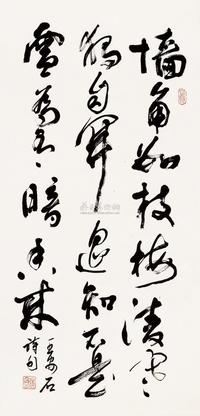 墙角数枝梅凌寒
独自开遥知不是
雪为有暗香来
王安石
诗句